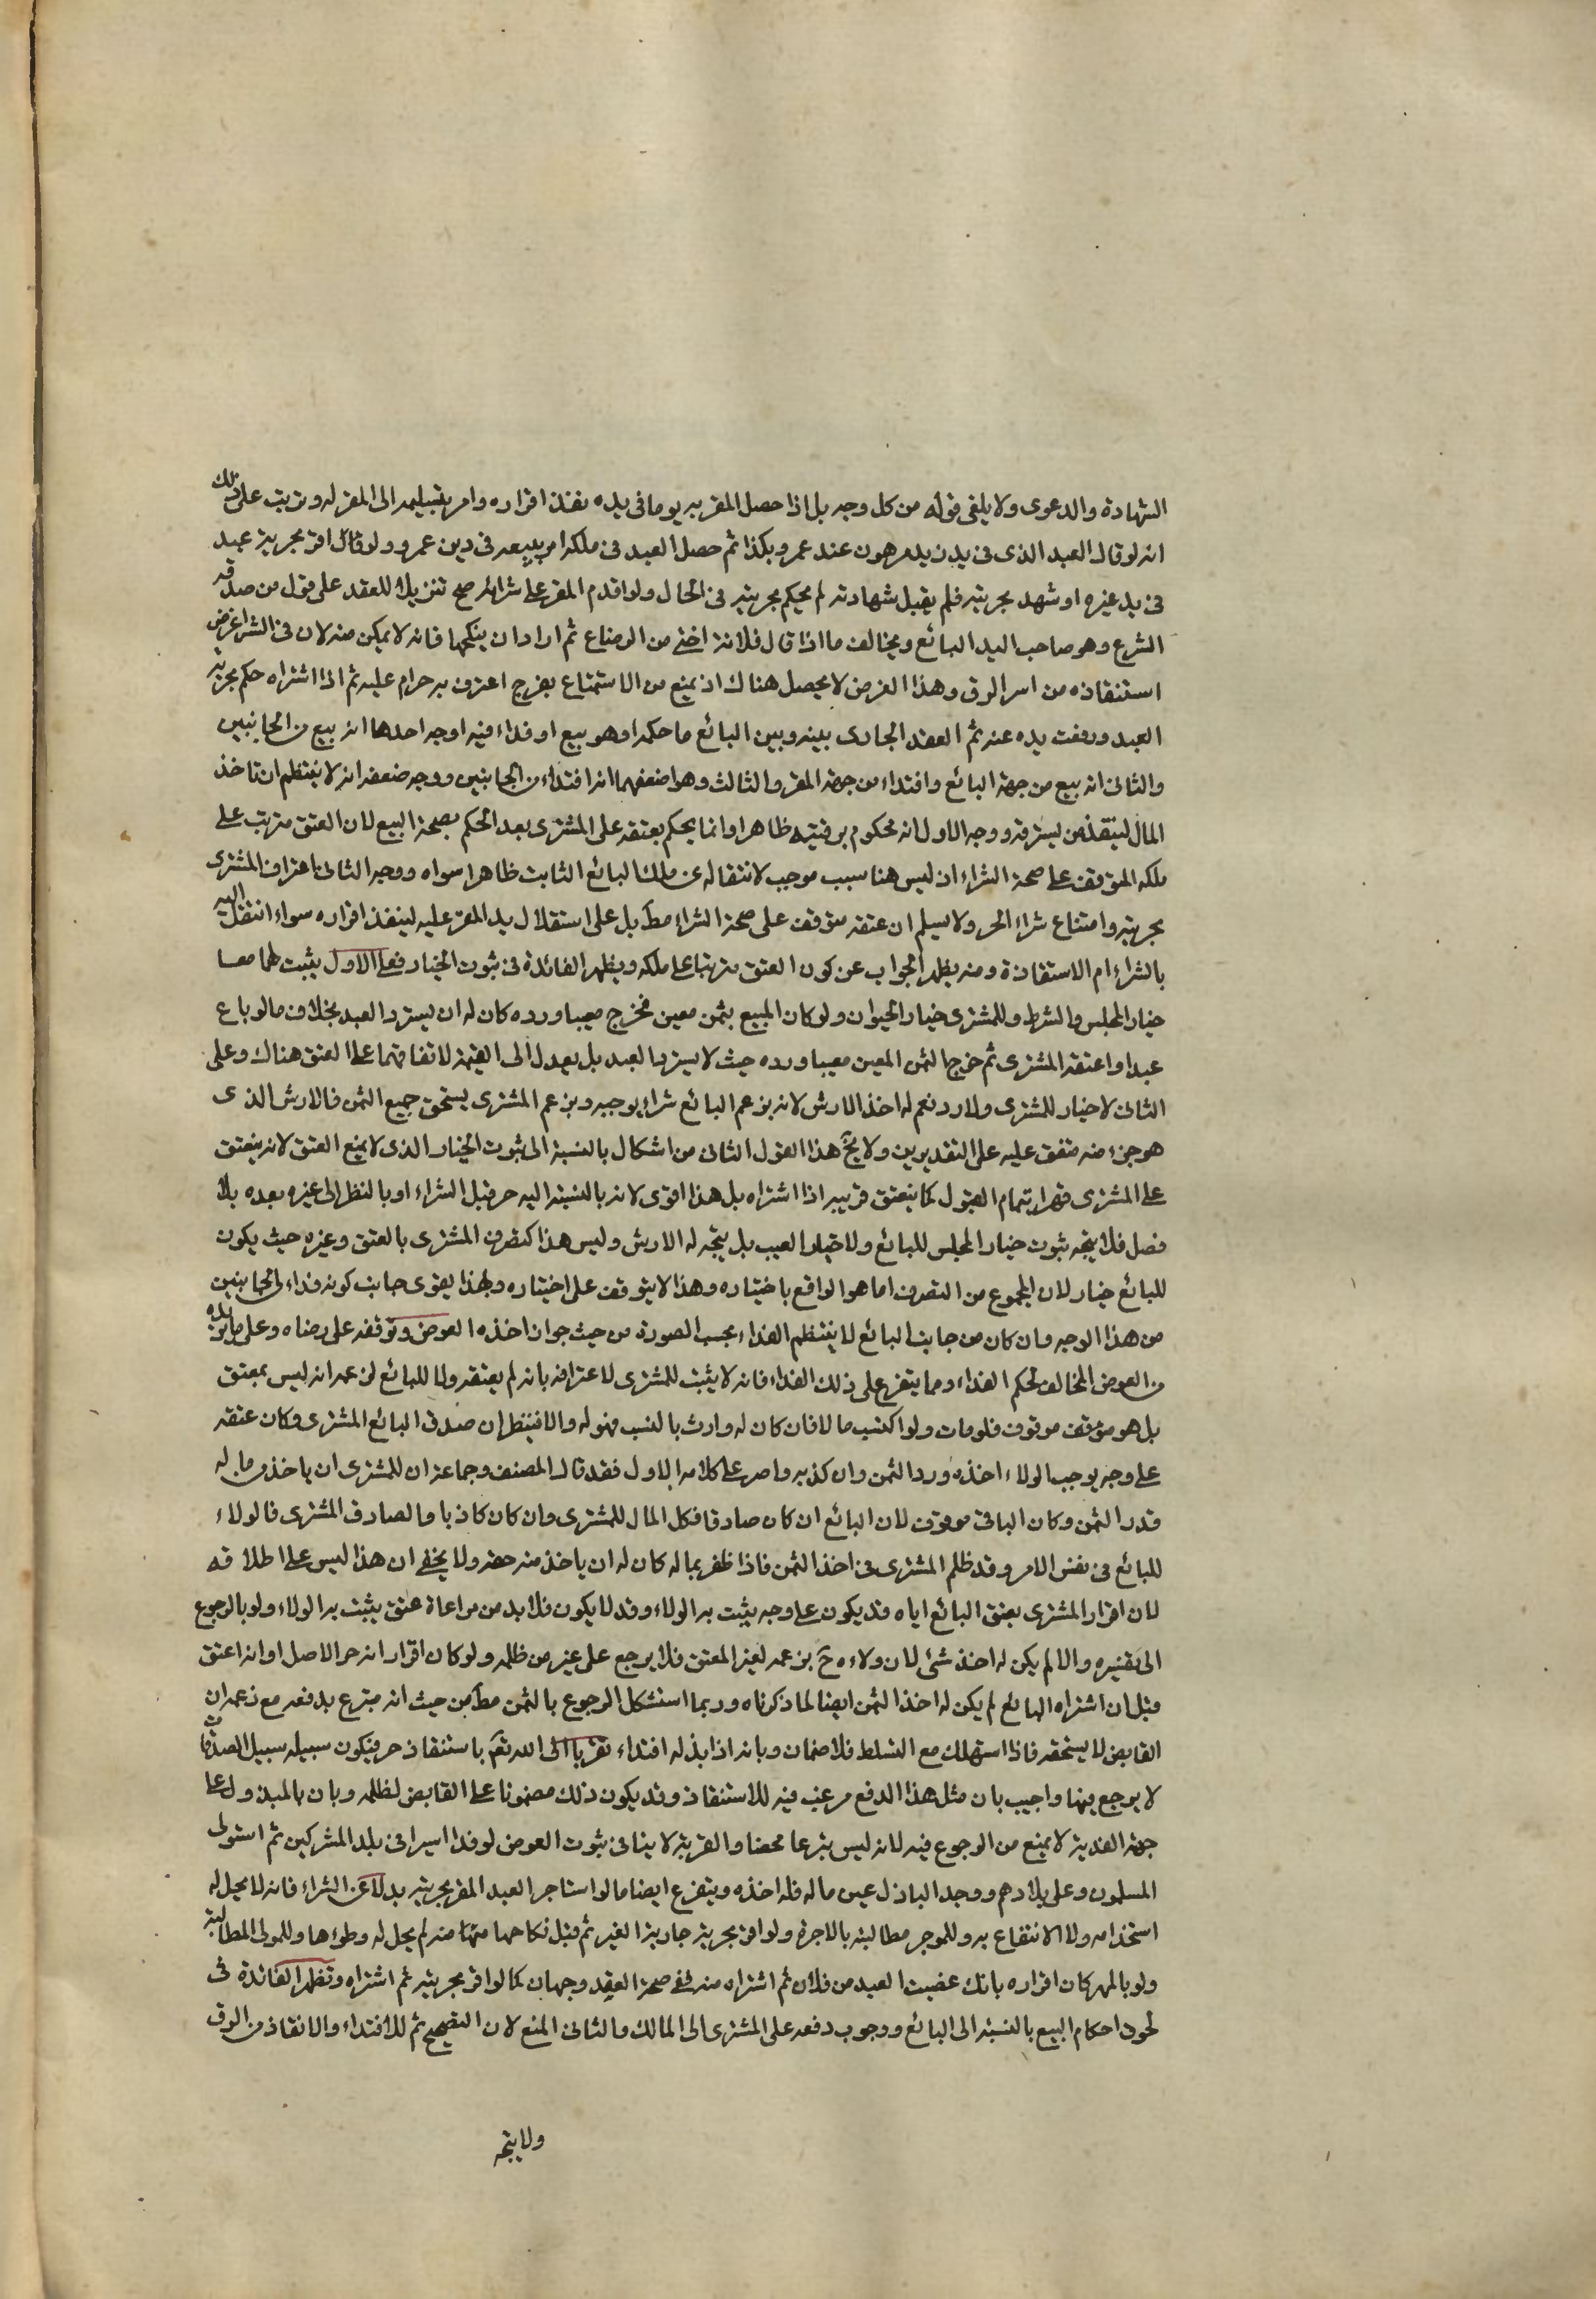 الشهادة والدعوى ولا يلغى قوله من كل وجه بل اذا حصل المقر به يوما فى يده نفذ اقراره وامر بتسليمه الى المقر له وترتب على ذلك
انه لو قال العبد الذى فى يد زيد مرهون عند عمرو بكذا ثم حصل العبد فى ملكه امر ببيعه فى دين عمرو ولو قال اقر بحرية عبد
فى يد غيره او شهد بحريته فلم يقبل شهادته لم يحكم بحريته فى الحال ولو اقدم المقر على شرائه صح تنزيلا للعقد على قول من صدقه
الشرع وهو صاحب اليد البائع ويخالف ما اذا قال فلانة اختى من الرضاع ثم اراد ان ينكحها فانه لا يمكن منه لان فى الشراء غرض
استنقاذه من اسر الرق وهذا الغرض لا يحصل هناك اذ يمنع من الاستمتاع بفرج اعترف بحرام عليه ثم اذا اشتراه حكم بحرية
العبد ورفعت يده عنه ثم العقد الجارى بينه وبين البائع ما حكمه اهو بيع او فداء فيه اوجه احدها انه بيع من الجانبين
والثانى انه بيع من جهة البائع وافتداء من جهة المقر والثالث وهو اضعفها انه افتداء من الجانبين ووجه ضعفه انه لا ينتظم ان تاخذ
المال لينقذ من يسترقه ووجه الاول انه محكوم برقيته ظاهرا وانما يحكم بعتقه على المشترى بعد الحكم بصحة البيع لان العتق مترتب على
ملكه المتوقف على صحة الشراء اذ ليس هنا سبب موجب لانتقاله عن ملك البائع الثابت ظاهرا سواه ووجه الثانى اعتراف المشترى
بحريته وامتناع شراء الحر ولا يسلم ان عتقه متوقف على صحة الشراء مط بل على استقلال يد المقر عليه لينفذ اقراره سواء انتقل اليه
بالشراء ام الاستقاذة ومنه يظهر الجواب عن كون العتق مترتبا على ملكه ويظهر الفائدة فى ثبوت الخيار فعلى الاول يثبت لهما معا
خيار المجلس والشرط وللمشترى خيار الحيوان ولو كان المبيع بثمن معين فخرج معيبا ورده كان له ان يسترد العبد بخلاف ما لو باع
عبدا واعتقه المشترى ثم خرج الثمن المعين معيبا ورده حيث لا يسترد العبد بل يعدل الى القيمة لاتفاقهما على العتق هناك وعلى
الثانى لا خيار للمشترى ولا رد نعم له اخذ الارش لانه بزعم البائع شراء يوجبه وبزعم المشترى يستحق جميع الثمن فالارش الذى
هو جزء منه متفق عليه على التقديرين ولا يخ هذا القول الثانى من اشكال بالنسبة الى ثبوت الخيار الذى لا يمنع العتق لانه ينعتق
على المشترى قهرا بتمام القبول كما ينعتق قريبه اذا اشتراه بل هذا اقوى لانه بالنسبة اليه حر قبل الشراء او بالنظر الى غيره بعده بلا
فصل فلا يتجه ثبوت خيار المجلس للبائع ولا خيار العيب بل يتجه له الارش وليس هذا كتصرف المشترى بالعتق وغيره حيث يكون
للبائع خيار لان المجموع من التصرف اما هو الواقع باختياره وهذا لا يتوقف على اختياره ولهذا يقوى جانب كونه فداء من الجانبين
من هذا الوجه وان كان من جانب البائع لا ينتظم الفداء بحسب الصورة من حيث جواز اخذه العوض وتوقفه على رضاه وعلى ما يريده
من العوض المخالف لحكم الفداء ومما يتفرع على ذلك الفداء فانه لا يثبت للمشترى لاعترافه بانه لم يعتقه ولا للبائع لزعمه انه ليس بمعتق
بل هو متوقف موقوف فلو مات ولو اكتسب مالا فان كان له وارث بالنسب فهو له والا فينظر ان صدق البائع المشترى وكان عتقه
على وجه يوجب الولاء اخذه ورد الثمن وان كذبه واصر على كلامه الاول فقد قال المصنف وجماعة ان للمشترى ان ياخذ من ماله
قدر الثمن وكان الباقى موقوف لان البائع ان كان صادقا فكل المال للمشترى وان كان كاذبا والصادق المشترى فالولاء
للبائع فى نفس الامر وقد ظلم المشترى فى اخذ الثمن فاذا ظفر بماله كان له ان ياخذ منه حقه ولا يخفى ان هذا ليس على اطلاقه
لان اقرار المشترى بعتق البائع اياه قد يكون على وجه يثبت به الولاء وقد لا يكون فلا بد من مراعاة عتق يثبت به الولاء ولو بالرجوع
الى تفسيره والا لم يكن له اخذ شئ لان ولاءه ح بزعمه لغير المعتق فلا يرجع على غير من ظلمه ولو كان اقرار انه حر الاصل او انه اعتق
قبل ان اشتراه البائع لم يكن له اخذ الثمن ايضا لما ذكرناه وربما استشكل الرجوع بالثمن مط من حيث انه متبرع بدفعه مع زعمه ان
القابض لا يستحقه فاذا استهلك مع التسلط فلا ضمان وبانه اذا بذله افتداء تقربا الى الله تع باستنقاذ حر فيكون سبيله سبيل الصدقات
لا يرجع فيها واجيب بان مثل هذا الدفع مرغب فيه للاستنقاذ وقد يكون ذلك مضمونا على القابض لظلمه وبان المبذول على
جهة الفدية لا يمنع من الرجوع فيه لانه ليس تبرعا محضا والقربة لا ينافى ثبوت العوض لو فدا اسيرا فى بلد المشركين ثم استولى
المسلمون على بلادهم ووجد الباذل عين ماله فله اخذه ويتفرع ايضا ما لو استاجر العبد المقر بحريته بدلا عن الشراء فانه لا يحل له
استخدامه ولا الانتفاع به وللموجر مطالبته بالاجرة ولو اقر بحرية جارية الغير ثم قبل نكاحها منه لم يحل له وطؤها وللمولى المطالبة
ولو بالمهر كان اقراره بانك غصبت العبد من فلان ثم اشتراه منه ففى صحة العقد وجهان كما لو اقر بحريته ثم اشتراه وتظهر الفائدة فى
لحوق احكام البيع بالنسبة الى البائع ووجوب دفعه على المشترى الى المالك والثانى المنع لان التصحيح ثم للافتداء والانقاذ من الرق
ولا يتجه